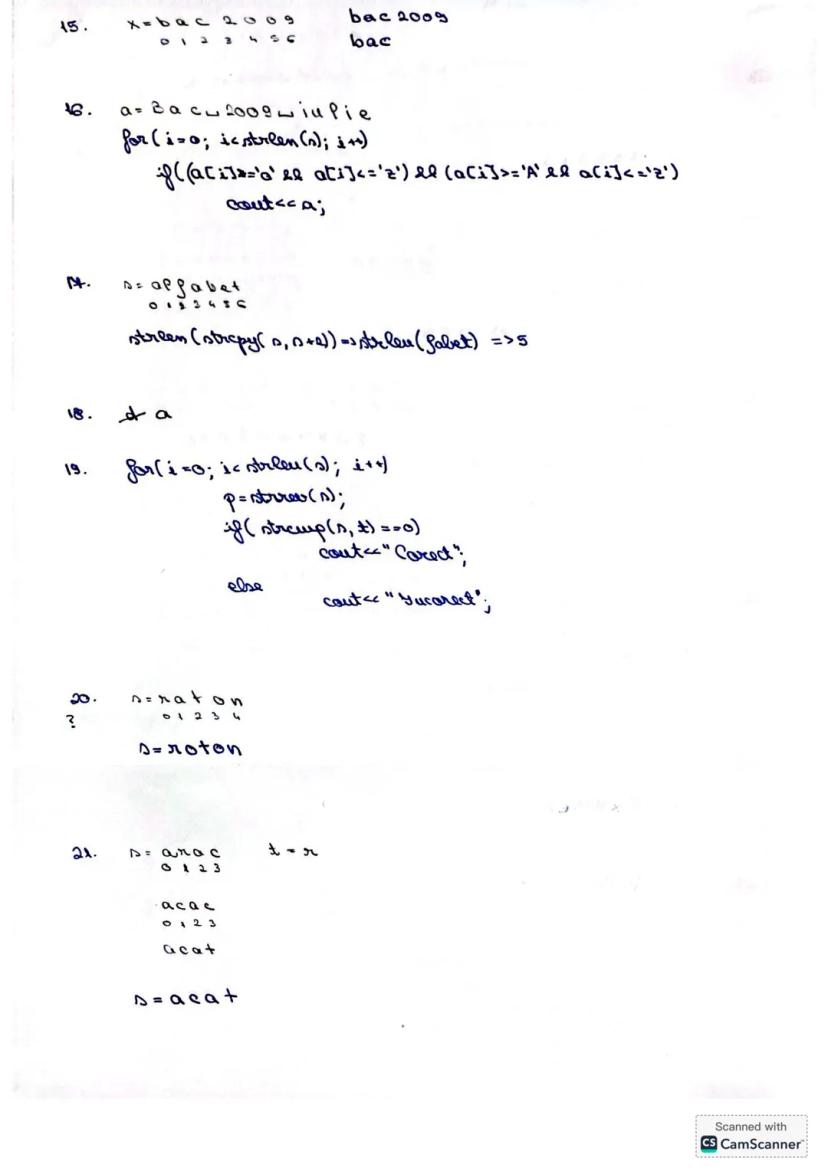 15. x=bac 2009 bac 2009
0 1 2 3 4 5 6 bac
16. a= Bac␣2009␣iulie
for(i=0; i<strlen(s); i++)
if((a[i]>='a' && a[i]<='z') && (a[i]>='A' && a[i]<='z')
cout<<a;
17. s= alfabet
0 1 2 3 4 5 6
strlen(strcpy(s, s+2))=>strlen(fabet) =>5
18. a
19. for(i=0; i<strlen(s); i++)
p=strrev(s);
if(strcmp(s, t)==0)
cout<<"Corect";
else
cout<<"Incorect";
20. s=raton
? 0 1 2 3 4
s=roton
21. s= arac t=r
0 1 2 3
acac
0 1 2 3
acat
s=acat
Scanned with
CS CamScanner